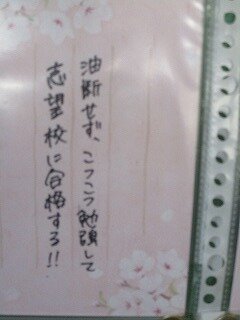 油断せず、こつこつ勉強して
志望校に合格する!!